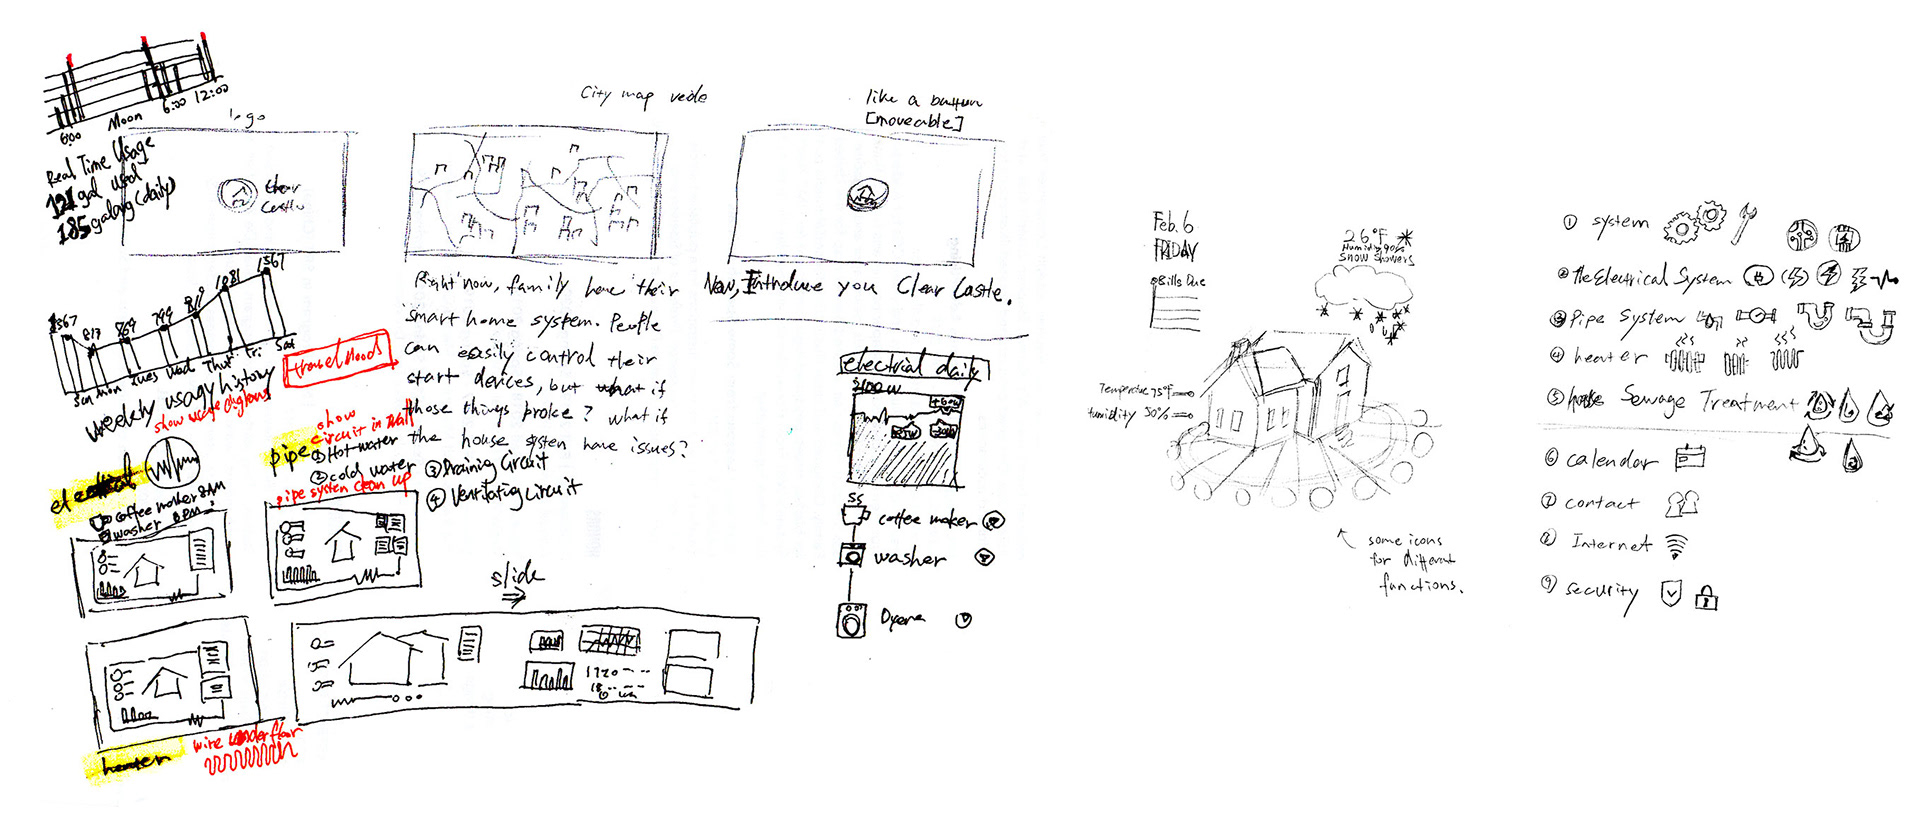 6:00 Moon 6:00 12:00
Real Time Usage
121 gal used
185 galong (daily)
logo
Clear
Castle
City map
like a button
[moveable]
Right now, family have their
smart home system. People
can easily control their
start devices, but what if
those things broke? What if
the house system have issues?
Now, Introduce you Clear Castle.
1367 817 769 799 819 1081 1367
Sun Mon Tues Wed Thur Fri Sat
weekly usagy history
show usage
travel Moods
electrical
coffee maker 8AM
washer 8PM
pipe
show
circuit in Wall
① Hot water
② cold water
③ Draining Circuit
④ Ventilating circuit
pipe system clean up
slide
1720
heater
wire under floor
electrial daily
2100W
+60W
coffee maker
washer
Feb. 6
FRIDAY
Bills Due
26°F
Humidity 90%
Snow Showers
Temperature 75°F
Humidity 30%
some icons
for different
functions.
① system
② the Electrical System
③ Pipe System
④ heater
⑤ Sewage Treatment
⑥ calendar
⑦ contact
⑧ Internet
⑨ security